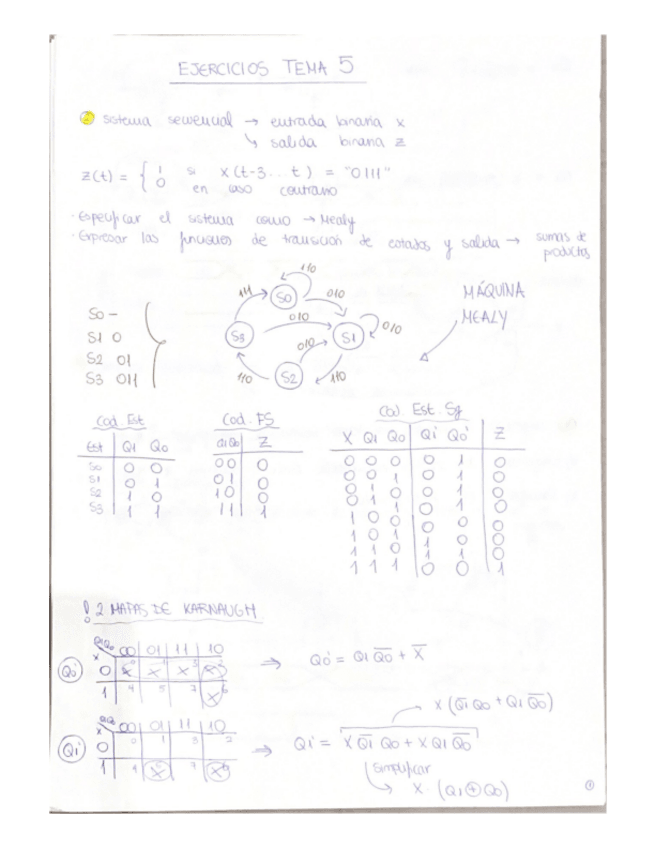 EJERCICIOS TEMA 5
2 sistema secuencial → entrada binaria x
↳ salida binaria z
z(t) = { 1 si x(t-3...t) = "0111"
0 en caso contrario
· Especificar el sistema como → Mealy
· Expresar las funciones de transición de estados y salida → sumas de
productos
1/0
1/1 S0 0/0
S0 -
S1 0
S2 01
S3 011
S3 0/0 S1 0/0
0/0
1/0 S2 1/0
MÁQUINA
MEALY
Cod. Est
Est Q1 Q0
S0 0 0
S1 0 1
S2 1 0
S3 1 1
Cod. FS
Q1Q0 Z
00 0
01 0
10 0
11 1
Est. Sg
X Q1 Q0 Q1' Q0' Z
0 0 0 0 1 0
0 0 1 0 1 0
0 1 0 0 1 0
0 1 1 0 1 0
1 0 0 0 0 0
1 0 1 1 0 0
1 1 0 1 1 0
1 1 1 0 0 1
! 2 MAPAS DE KARNAUGH
Q1Q0 00 01 11 10
x
Q0' 0 x x x x
1 4 5 7 x6
⇒ Q0' = Q1 Q̅0̅ + X̅
Q1Q0 00 01 11 10
x
Q1' 0 0 1 3 2
1 4 x5 7 x6
x (Q̅1̅ Q0 + Q1 Q̅0̅)
⇒ Q1' = X Q̅1̅ Q0 + X Q1 Q̅0̅
simplificar
↳ X · (Q1 ⊕ Q0)
1